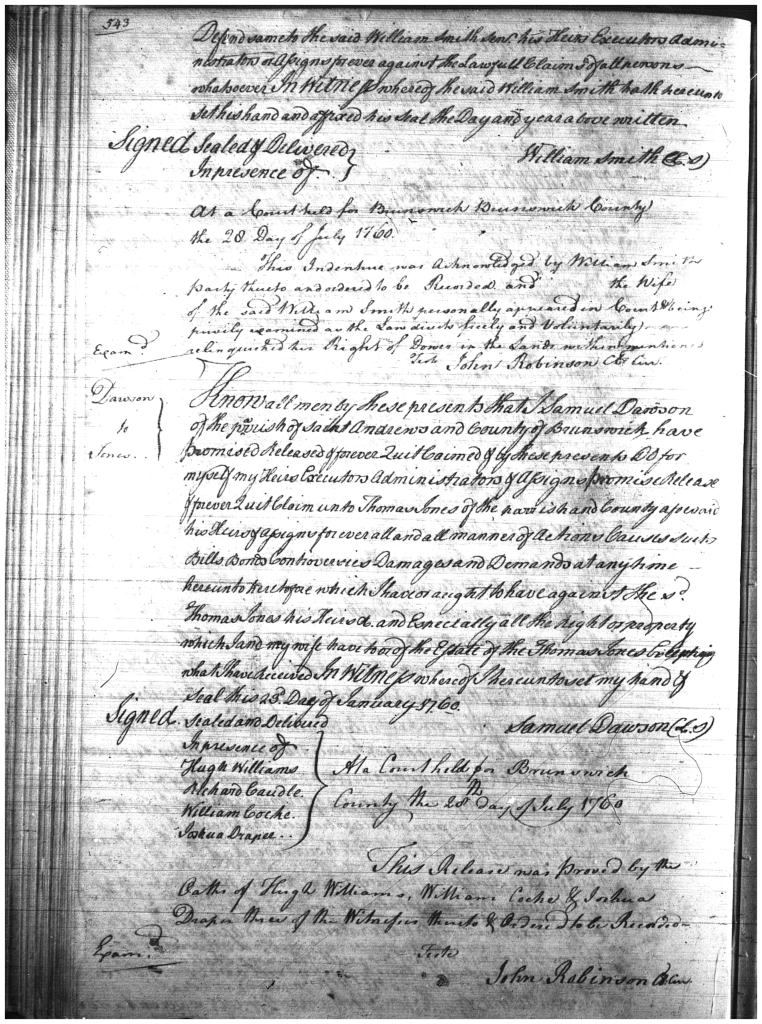 543
Defend same to the said William Smith Senr. his Heirs Executors Admi-
nistrators or Assigns forever against the Lawfull Claims of all persons
whatsoever In Witness whereof the said William Smith hath hereunto
set his hand and affixed his seal the Day and year above written
Signed Sealed & Delivered
In presence of
William Smith (L S)
At a Court held for Brunswick Brunswick County
the 28 Day of July 1760.
This Indenture was Acknowledged by William Smith
party thereto and ordered to be Recorded and the Wife
of the said William Smith personally appeared in Court & being
privily examined as the Law directs freely and Voluntarily
relinquished her Right of Dower in the Lands within mentioned
Examd.
Teste John Robinson Cl Cur.
Dawson
to
Jones..
Know all men by these presents that I Samuel Dawson
of the parish of Saint Andrews and County of Brunswick have
promised Released & forever Quit Claimed & by these presents Do for
myself my Heirs Executors Administrators & Assigns promise Release
& forever Quit Claim unto Thomas Jones of the parish and County aforesaid
his Heirs & Assigns forever all and all manner of Actions Causes Suits
Bills Bonds Controversies Damages and Demands at any time
hereunto heretofore which I have or aught to have against the sd.
Thomas Jones his Heirs &. and Especially all the right or property
which I and my wife have to or of the Estate of the Thomas Jones
what I have Received In Witness whereof I hereunto set my hand &
Seal this 23d. Day of January 1760.
Signed. Sealed and Delivered
Samuel Dawson (L.S)
In presence of
Hugh Williams
Richard Caudle.
William Cocke.
Joshua Draper..
At a Court held for Brunswick
County the 28th day of July 1760
This Release was proved by the
Oaths of Hugh Williams, William Cocke & Joshua
Draper three of the Witnesses thereto & Ordered to be Recorded
Examd.
Teste
John Robinson Cl Cur